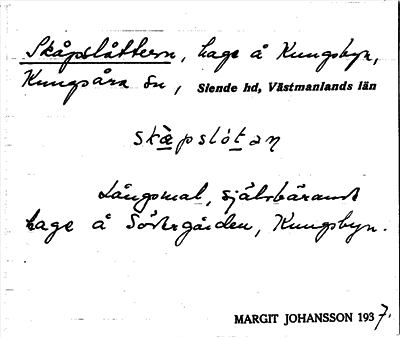 Skåpslåttern, hage å Kungsbyn,
Kungsåra sn, Siende hd, Västmanlands län
skæpslótan
Långsmal, självbärande
hage å Södergården, Kungsbyn.
MARGIT JOHANSSON 1937.